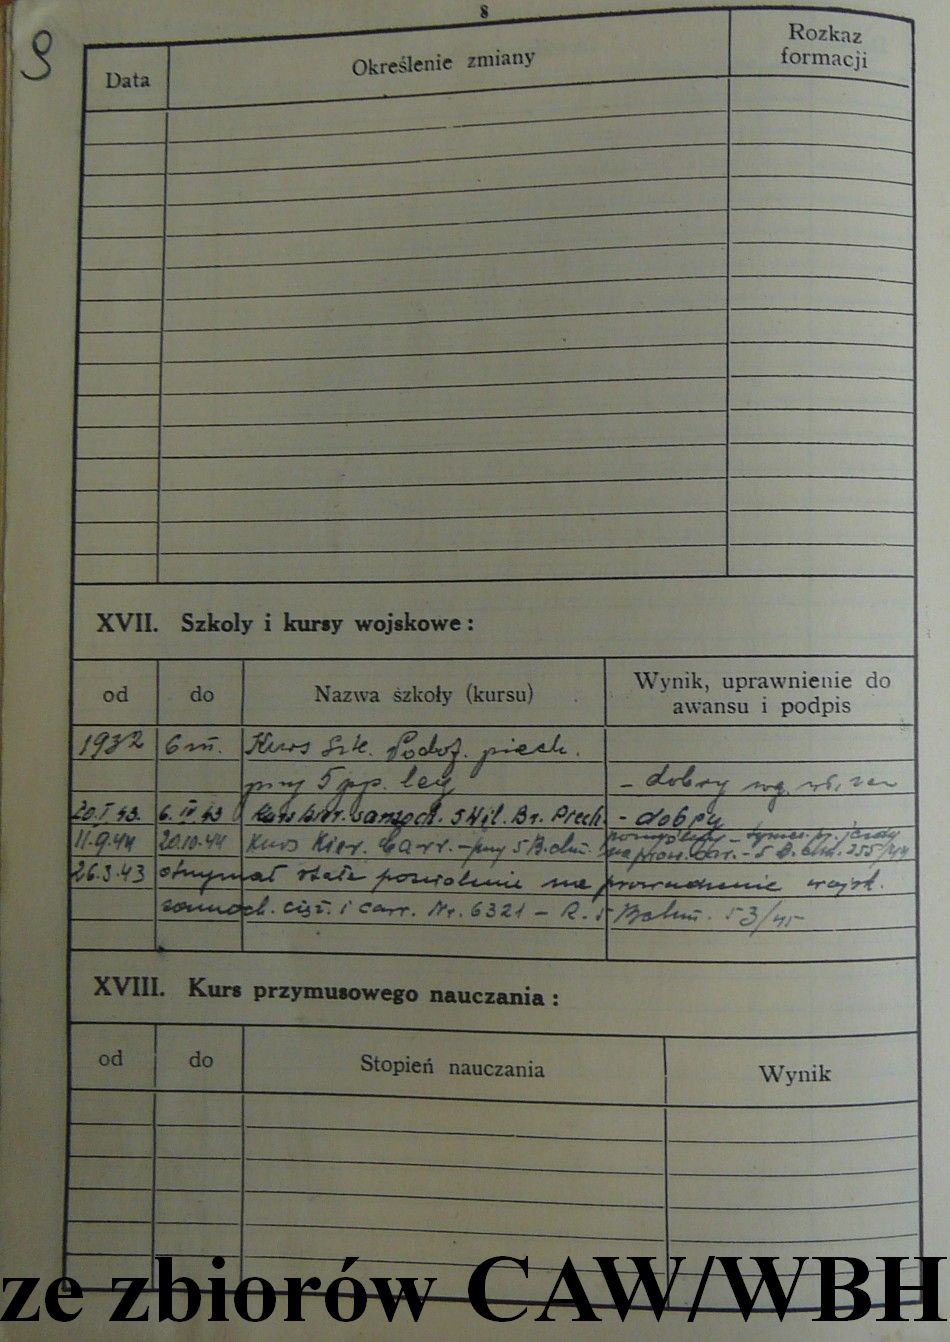 8
9
Data Określenie zmiany Rozkaz formacji
XVII. Szkoly i kursy wojskowe:
od do Nazwa szkoły (kursu) Wynik, uprawnienie do awansu i podpis
1932 6 m. Kurs Szk. Podof. piech.
przy 5 pp. leg - dobry wg.
20.I.43 6.IV.43 Kurs kier. samoch. 5 Wil. Br. Piech. - dobry
11.9.44 20.10.44 Kurs Kier. Carr. - przy 5 B. - 5 B. 255/44
26.3.43 otrzymał stałe pozwolenie na prowadzenie wojsk.
samoch. cięż. i carr. Nr. 6321 - R. 5 53/45
XVIII. Kurs przymusowego nauczania:
od do Stopień nauczania Wynik
ze zbiorów CAW/WBH